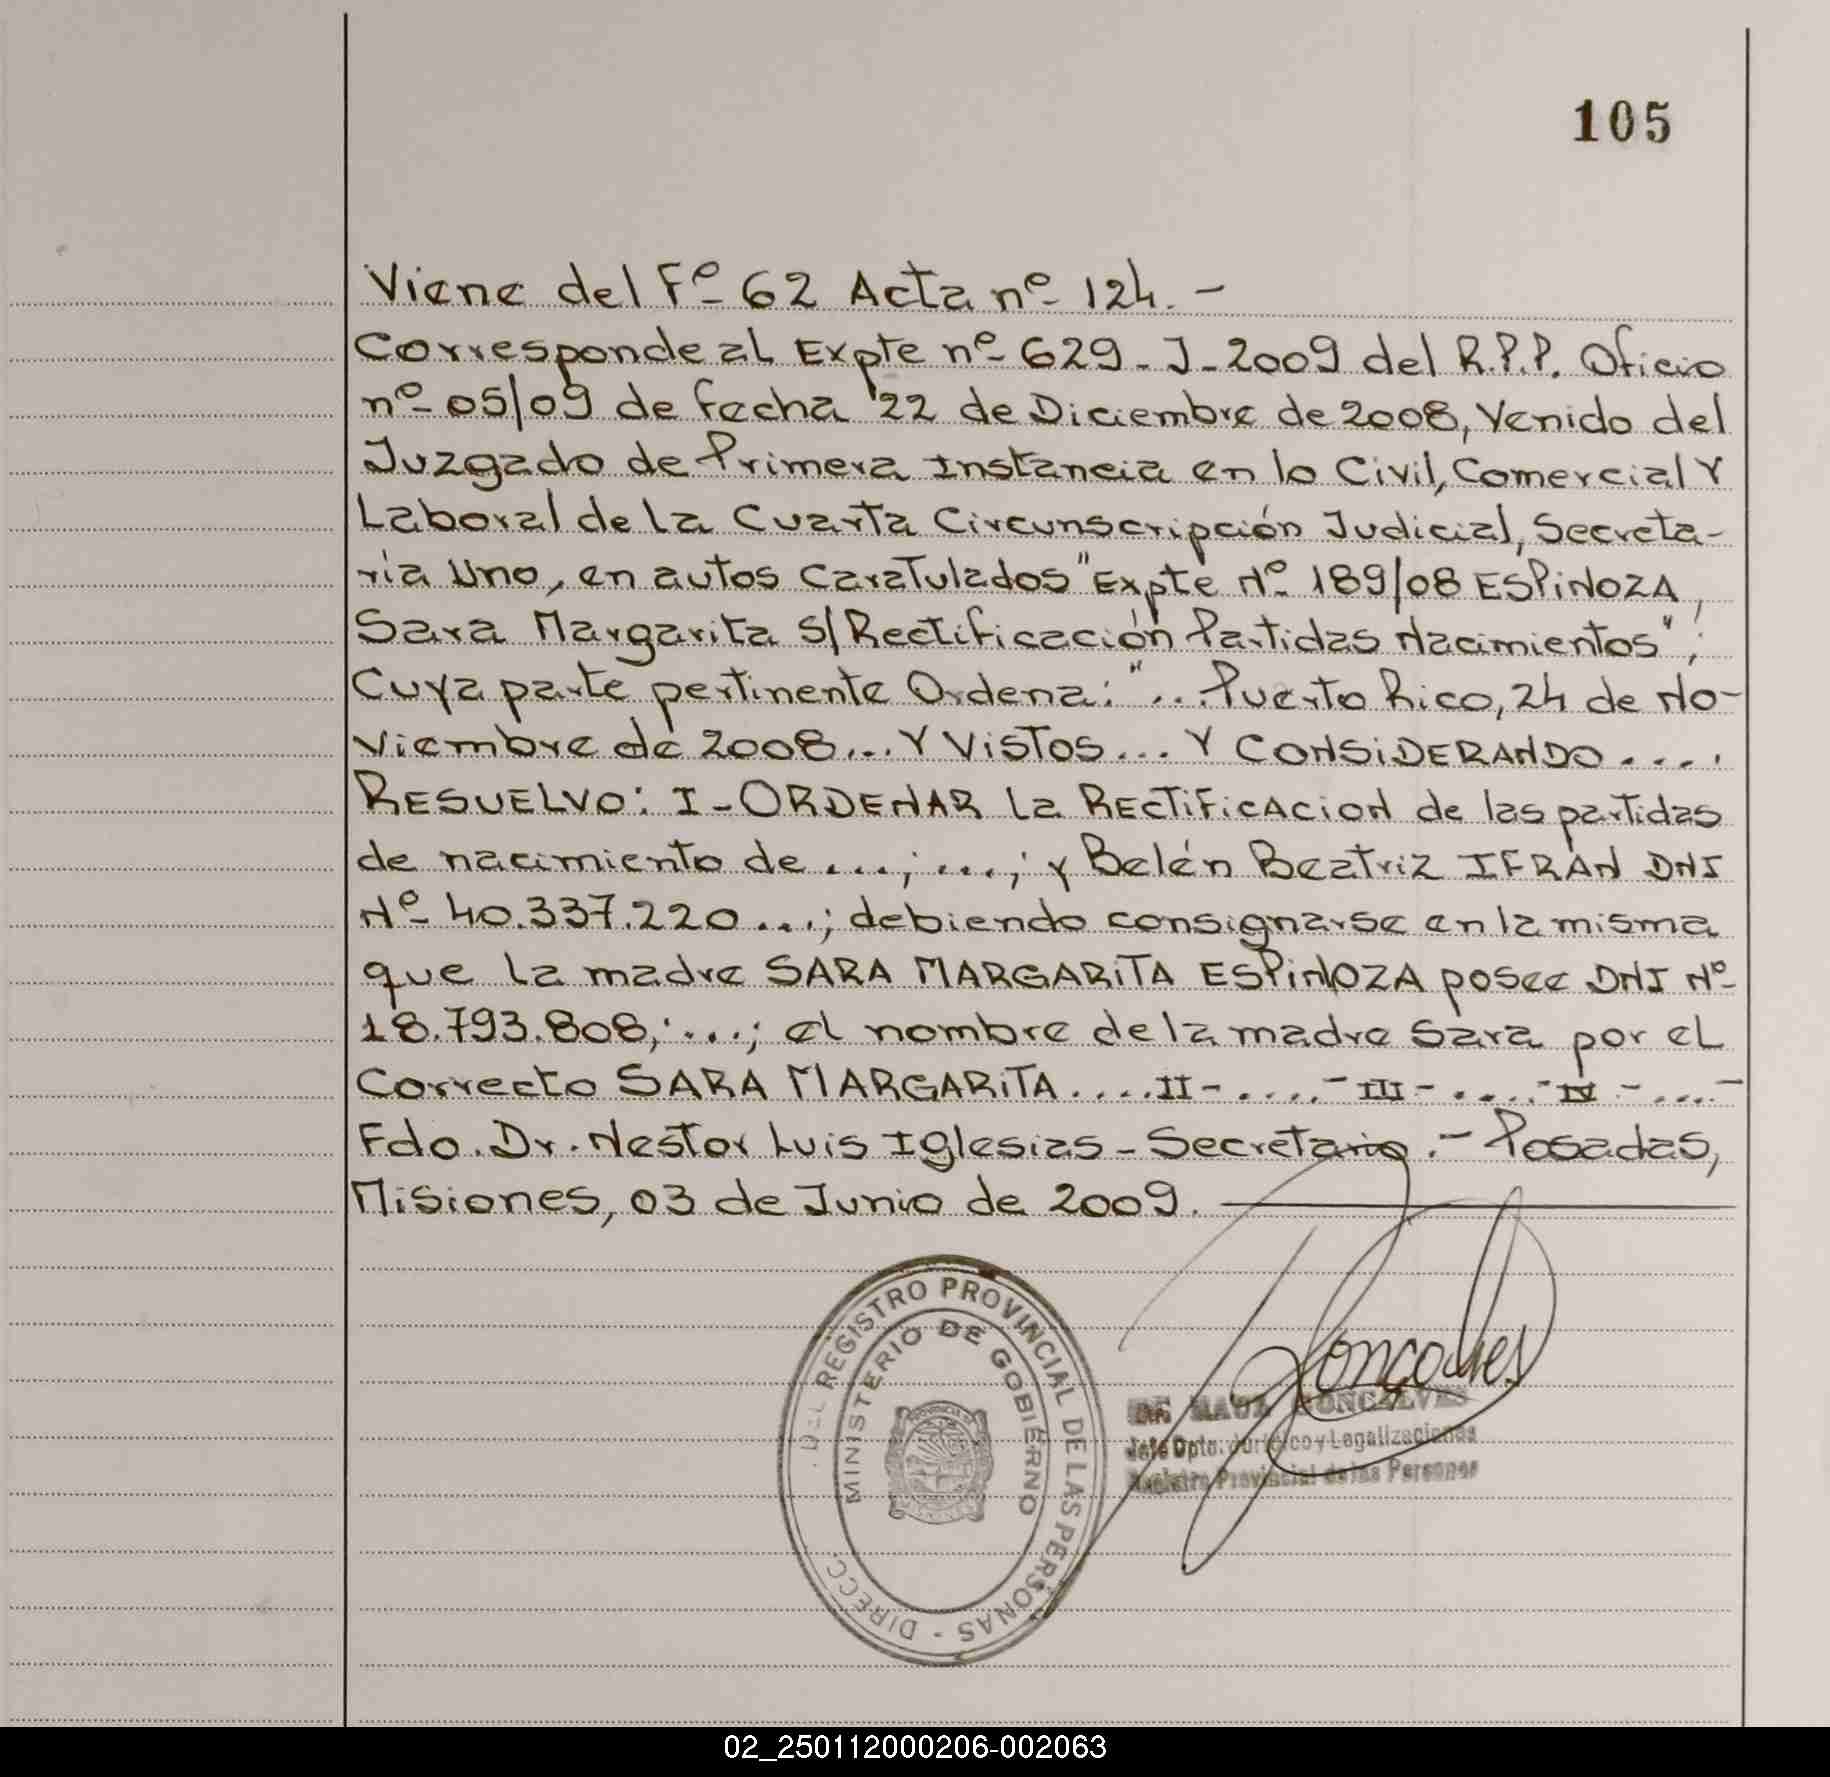 105
Viene del Fº 62 Acta nº 124.-
Corresponde al Expte nº 629-J-2009 del R.P.P. Oficio
nº 05/09 de fecha 22 de Diciembre de 2008, Venido del
Juzgado de Primera Instancia en lo Civil, Comercial Y
Laboral de La Cuarta Circunscripción Judicial, Secreta-
ria Uno, en autos Caratulados "Expte Nº 189/08 ESPINOZA,
Sara Margarita S/Rectificación Partidas Nacimientos";
Cuya parte pertinente Ordena: "...Puerto Rico, 24 de No-
viembre de 2008... Y VISTOS... Y CONSIDERANDO....
RESUELVO: I-ORDENAR La RECTIFICACION de las partidas
de nacimiento de ...; ...; y Belén Beatriz IFRÁN DNI
Nº 40.337.220 ...; debiendo consignarse en la misma
que La madre SARA MARGARITA ESPINOZA posee DNI Nº
18.793.808; ...; el nombre de la madre Sara por el
Correcto SARA MARGARITA....II-....-III-....-IV-....-
Fdo. Dr. Nestor Luis Iglesias-Secretario.- Posadas,
Misiones, 03 de Junio de 2009.
DIRECC. DEL REGISTRO PROVINCIAL DE LAS PERSONAS -
MINISTERIO DE GOBIERNO
Goncalves
GONCALVES
Jefe Dpto. Jurídico y Legalizaciones
Registro Provincial de las Personas
02_250112000206-002063